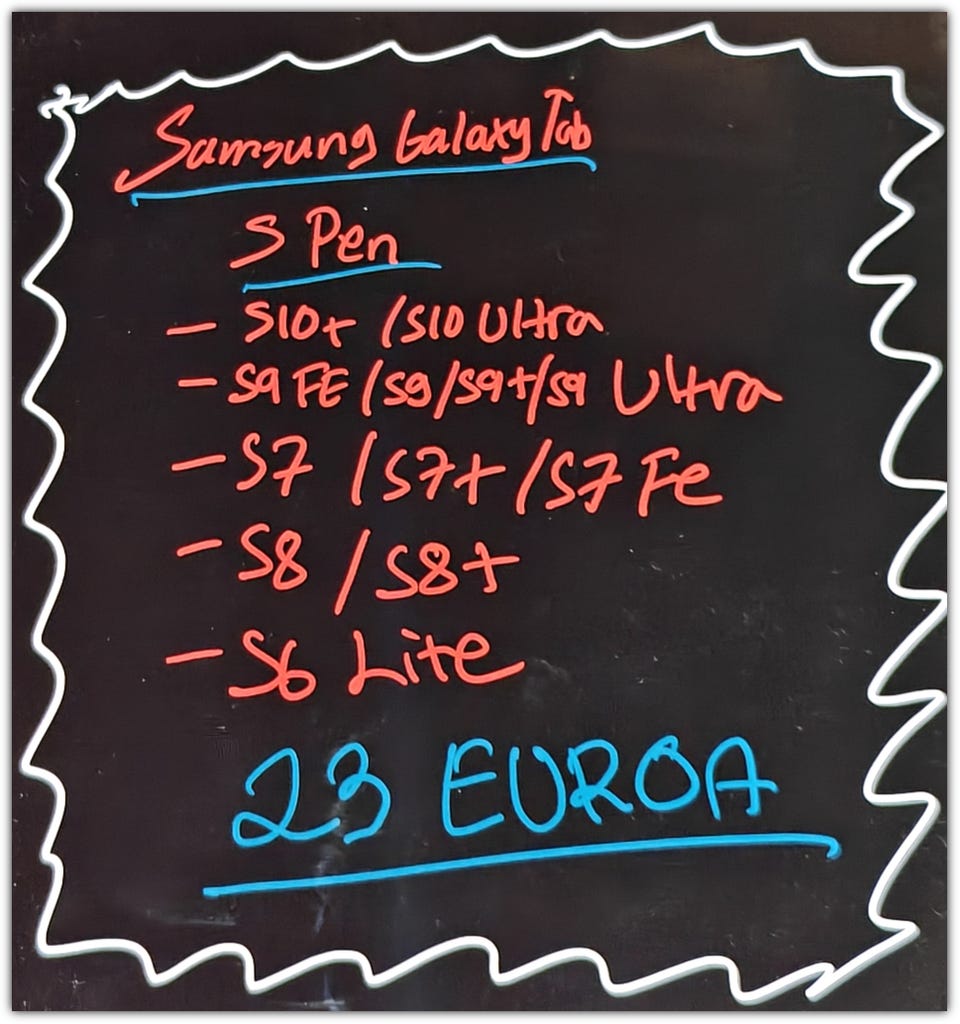 Samsung Galaxy Tab
S Pen
- S10+ / S10 Ultra
- S9 FE / S9 / S9+ / S9 Ultra
- S7 / S7+ / S7 Fe
- S8 / S8+
- S6 Lite
23 EUROA